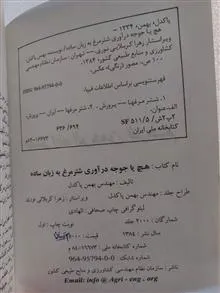 پاکدل، بهمن، ۱۳۳۴ -
هچ یا جوجه درآوری شترمرغ به زبان ساده/نویسنده بهمن پاکدل؛
ویراستار زهرا کربلائی نوری. - تهران: سازمان نظام مهندسی
کشاورزی و منابع طبیعی کشور، ۱۳۸۴.
۱۰۰ ص. مصور (رنگی)، عکس.
فهرستنویسی براساس اطلاعات فیپا.
۱. شتر مرغها -- پرورش. ۲. شتر مرغها -- ایران -- پرورش.
الف. عنوان.
۶۳۶/۶۹۴
SF ۵۱۱/۵/
کتابخانه ملی ایران
نام کتاب: هچ یا جوجه درآوری شترمرغ به زبان ساده
تألیف: مهندس بهمن پاکدل
طراح جلد: مهندس بهمن پاکدل
ویراستار: زهرا کربلائی نوری
لیتوگرافی چاپ صحافی: الهادی
شمارگان: ۲۰۰۰ جلد
نوبت چاپ: اول
سال: ۱۳۸۴
قیمت:
شماره کتابخانه ملی:
شابک: 964-95794-0-0
ناشر: سازمان نظام مهندسی کشاورزی و منابع طبیعی کشور
Email: info @ Agri - eng . org